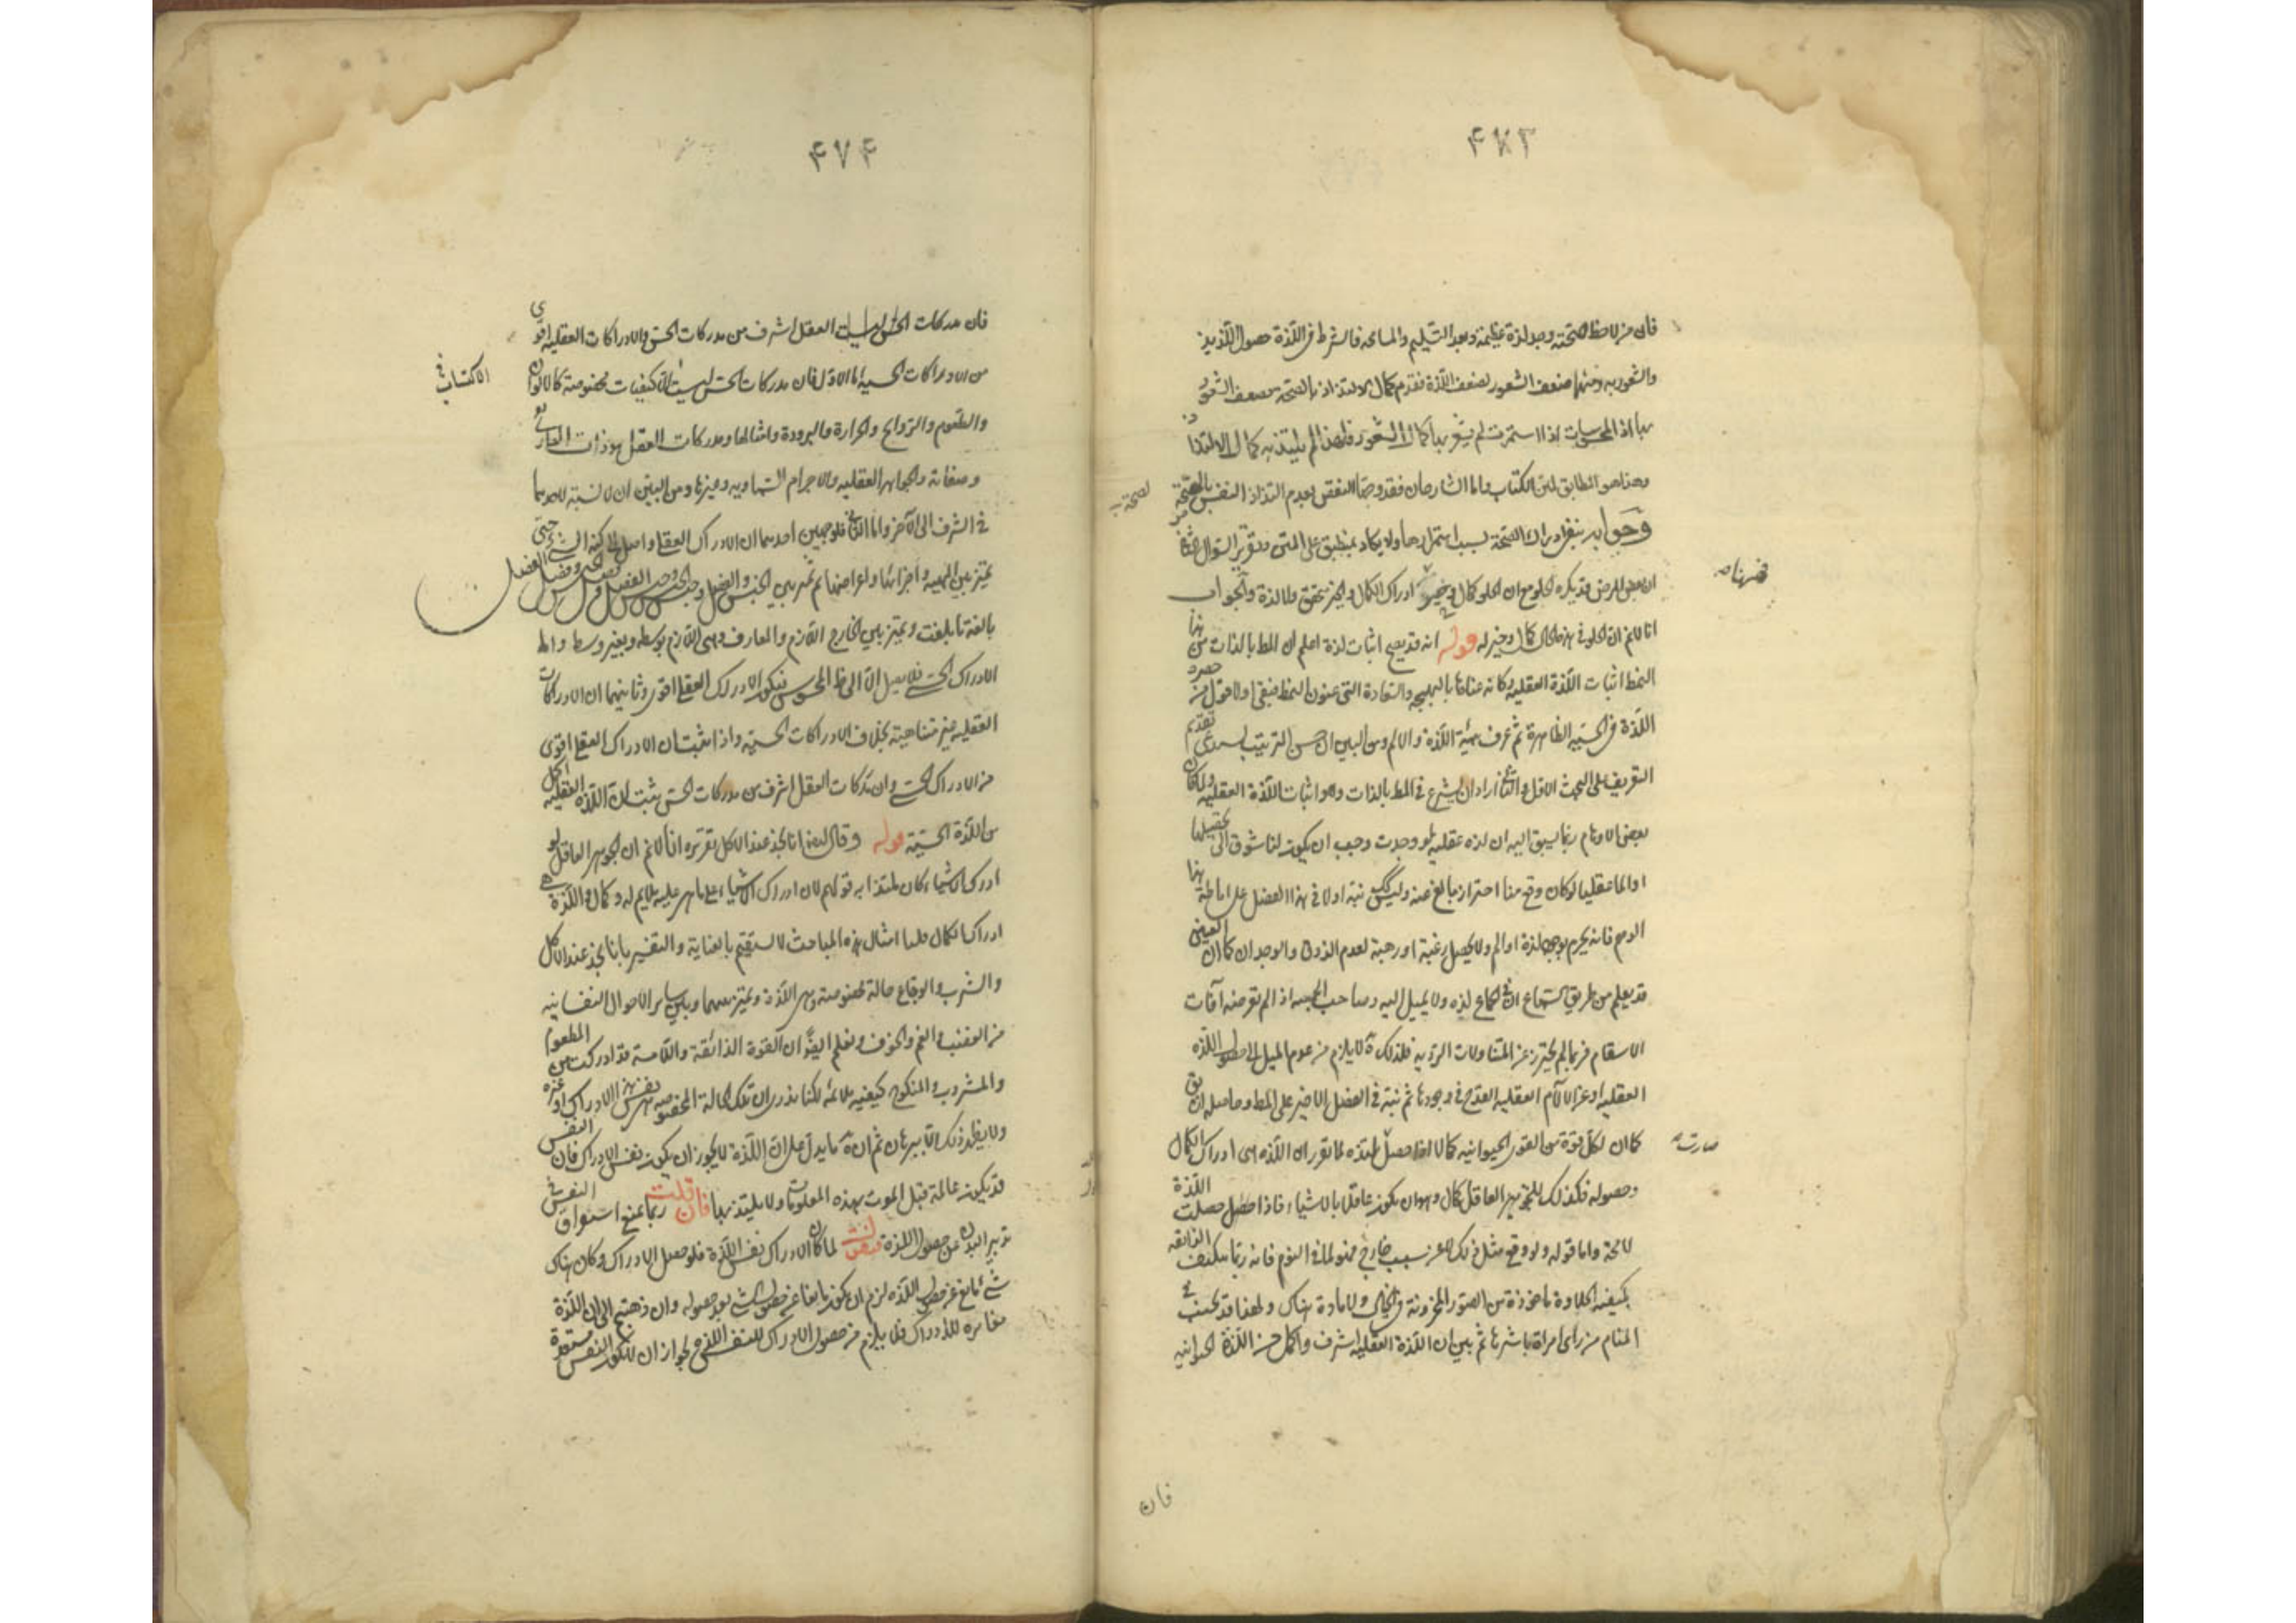 ۴۷۳
فان من لاحظ الصحة وجد لذة عظيمة وبعد التسليم والمسامحة فالشرط في اللذة حصول اللذيذ
والشعور به ومنها ضعف الشعور لضعف اللذة فقدم كمال الالتذاذ بالصحة لضعف الشعور
بها اذ المحسوسات اذا استمرت لم يشعر بها كمال الشعور فلهذا لم يلتذ به كمال الالتذاذ
وهذا هو المطابق لمتن الكتاب واما الشارحان فقد وجها النقض بعدم التذاذ النفس بالصحة
لصحة
وجوابه بنفي ادراك الصحة بسبب استمرارها ولا يكاد ينطبق على المتن وتقرير السؤال الثاني
ان بعض المرضى قد يكره الحلو مع ان الحلو كمال وخير ادراك الكمال والخير متحقق ولا لذة والجواب
فههنا
انا لا نم ان الحلو في هذه الحال كمال وخير له قوله انه قد يصح اثبات لذة اعلم ان المط بالذات من هذا
النمط اثبات اللذة العقلية وكانه عناها بالبهجة والسعادة التي عنون النمط فنفى اولا قول من حصر
اللذة في الحسية الظاهرة ثم عرف مهية اللذة والالم ومن البين ان حسن الترتيب يستدعي تقديم
التعريف على البحث الاول والثاني اراد ان يشرع في المط بالذات وهو اثبات اللذة العقلية ولما كان
بعض الاوهام ربما يسبق اليه ان لذة عقلية لو وجدت وجب ان يكون لنا شوق الى تحصيلها
او الما عقليا لو كان وقع منا احتراز بالغ عنه وليس كك نبه اولا في هذا الفصل على اماطة هذا
الوهم فانه يجزم بوجود لذة او الم ولا يحصل رغبة او رهبة لعدم الذوق والوجدان كما ان العنين
قد يعلم من طريق السماع ان في الجماع لذة ولا يميل اليه وصاحب الحمية اذ لم تعرضه آفات
الاسقام فربما لم يحترز عن المتناولات الردية فلذلك لا يلزم من عدم الميل الى حصول اللذة
العقلية او عن الآلام العقلية القدح في وجودها ثم نبه في الفصل الاخير على المط وحاصله ان
كما ان لكل قوة من القوى الحيوانية كمالا اذا حصل ملتذة لما تقرر ان اللذة هي ادراك الكمال
صارت
وحصوله فكذلك للجوهر العاقل كمال وهو ان يكون عاقلا بالاشياء فاذا حصل حصلت اللذة
لا محة واما قوله ولو وقع مثل ذلك لا عن سبب خارج فهو لما في النوم فانه ربما يتكيف الذائقة
بكيفية الحلاوة ماخوذة من الصور المخزونة في الخيال ولا مادة هناك ولهذا قد يجنب في
المنام من راى امراة باشرها ثم بين ان اللذة العقلية اشرف واكمل من اللذة الحيوانية
فان
۴۷۴
فان مدركات العقل اشرف من مدركات الحس والادراكات العقلية اقوى
من الادراكات الحسية اما الاول فان مدركات الحس ليست الا كيفيات مخصوصة كالالوان
والطعوم والروائح والحرارة والبرودة وامثالها ومدركات العقل هو ذات الباري
وصفاته والجواهر العقلية والاجرام السماوية وغيرها ومن البين ان لا نسبة لاحدهما
في الشرف الى الآخر واما الثاني فلوجهين احدهما ان الادراك العقلي واصل الى كنه الشيء حتى
يميز بين المهية واجزائها واعراضها ثم يميز بين الجنس والفصل وجنس الجنس وفصل الفصل
بالغة ما بلغت ويميز بين الخارج اللازم والمفارق وبين اللازم بوسط وبغير وسط واما
الادراك الحسي فلا يصل الا الى ظاهر المحسوس فيكون الادراك العقلي اقوى وثانيهما ان الادراكات
العقلية غير متناهية بخلاف الادراكات الحسية واذا ثبت ان الادراك العقلي اقوى
من الادراك الحسي وان مدركات العقل اشرف من مدركات الحس ثبت ان اللذة العقلية اكمل
من اللذة الحسية قوله وقال ايضا انا نجد عند الاكل تقريره انا لا نم ان الجوهر العاقل لو
ادرك الاشياء كان ملتذا به قولهم لان ادراك الاشياء على ما هي عليه ملايم له وكمال واللذة هي
ادراك الكمال قلنا امثال هذه المباحث لا يستقيم بالعناية والتفسير بل انا نجد عند الاكل
والشرب والوقاع حالة مخصوصة هي اللذة ونميز بينها وبين ساير الاحوال النفسانية
من الغضب والغم والخوف ونعلم ايضا ان القوة الذائقة واللامسة قد ادركت من المطعوم
والمشروب والمنكوح كيفية ملائمة لكنا لا ندري ان تلك الحالة المخصوصة هي نفس هذا الادراك او غيره
ولا يظهر ذلك الا ببرهان ثم ان ما يدل على ان اللذة لا يجوز ان يكون نفس الادراك فان النفس
قد يكون عالمة قبل الموت بهذه المعلومات ولا يلتذ بها فان قلت ربما يمنع استغراق النفس في
تدبير البدن من حصول اللذة فنقول لما كان الادراك نفس اللذة فلو حصل الادراك وكان هناك
شيء مانع عن حصول اللذة لزم ان يكون مانعا عن حصول الشيء بعد حصوله وان ذهبتم الى ان اللذة
مغايرة للادراك فلا يلزم من حصول الادراك للنفس اللذة لجواز ان لا تكون النفس مستعدة